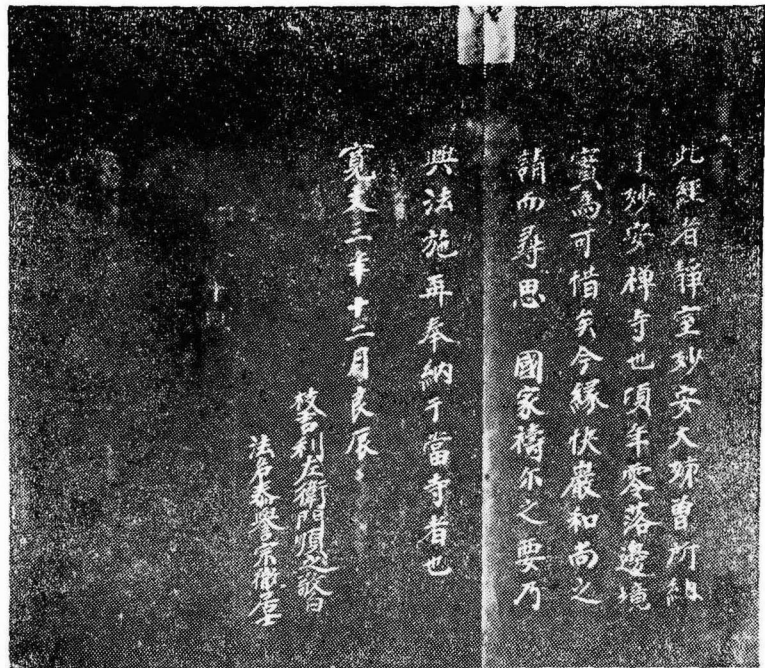 此經者靜室妙安大姉曹所納
于妙安禅寺也頃年零落邊境
實為可惜矣今縁快巖和尚之
請而尋思 國家禱尓之要乃
興法施再奉納于當寺者也
寛文三年十二月良辰
吉利左衛門頻之敬白
法名泰譽宗衛居士